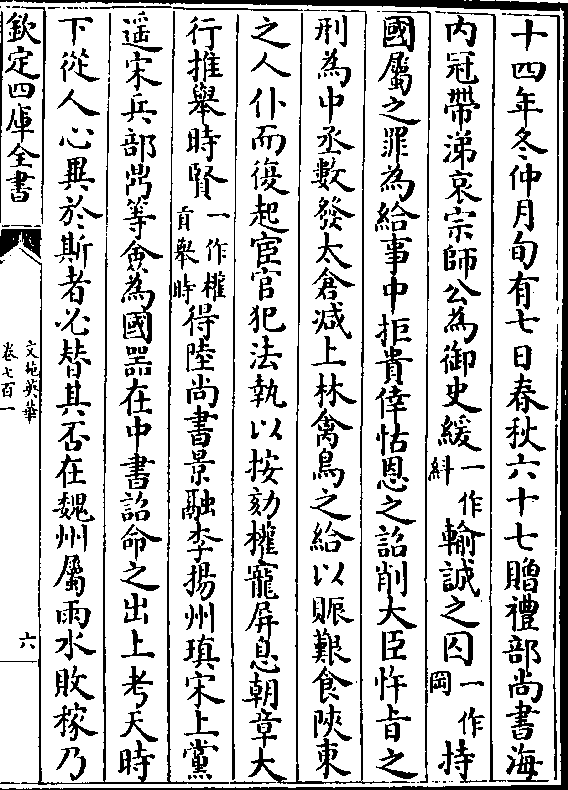 十四年冬仲月旬有七日春秋六十七贈禮部尚書海
内冠帶涕哀宗師公為御史緩一作糾輸誠之囚一作岡持
國屬之罪為給事中拒貴倖怙恩之詔削大臣忤旨之
刑為中丞數發太倉減上林禽鳥之給以賑艱食陜東
之人仆而復起宦官犯法執以按劾權寵屏息朝章大
行推舉時賢一作權貢舉時得陸尚書景融李揚州瑱宋上黨
遥宋兵部鼎等僉為國器在中書詔命之出上考天時
下從人心異於斯者必替其否在魏州屬雨水敗稼乃
欽定四庫全書
文苑英華
卷七百一
六